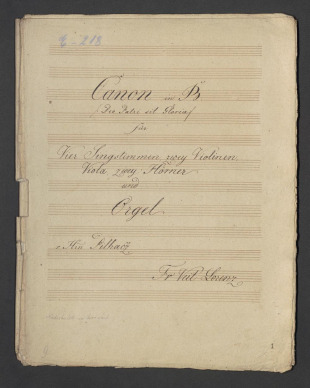 Canon in B
Deo Patri sit Gloria
für
Vier Singstimmen, zwey Violinen
Viola zwey Hörner
und
Orgel
Fr Veit Lorenz
1